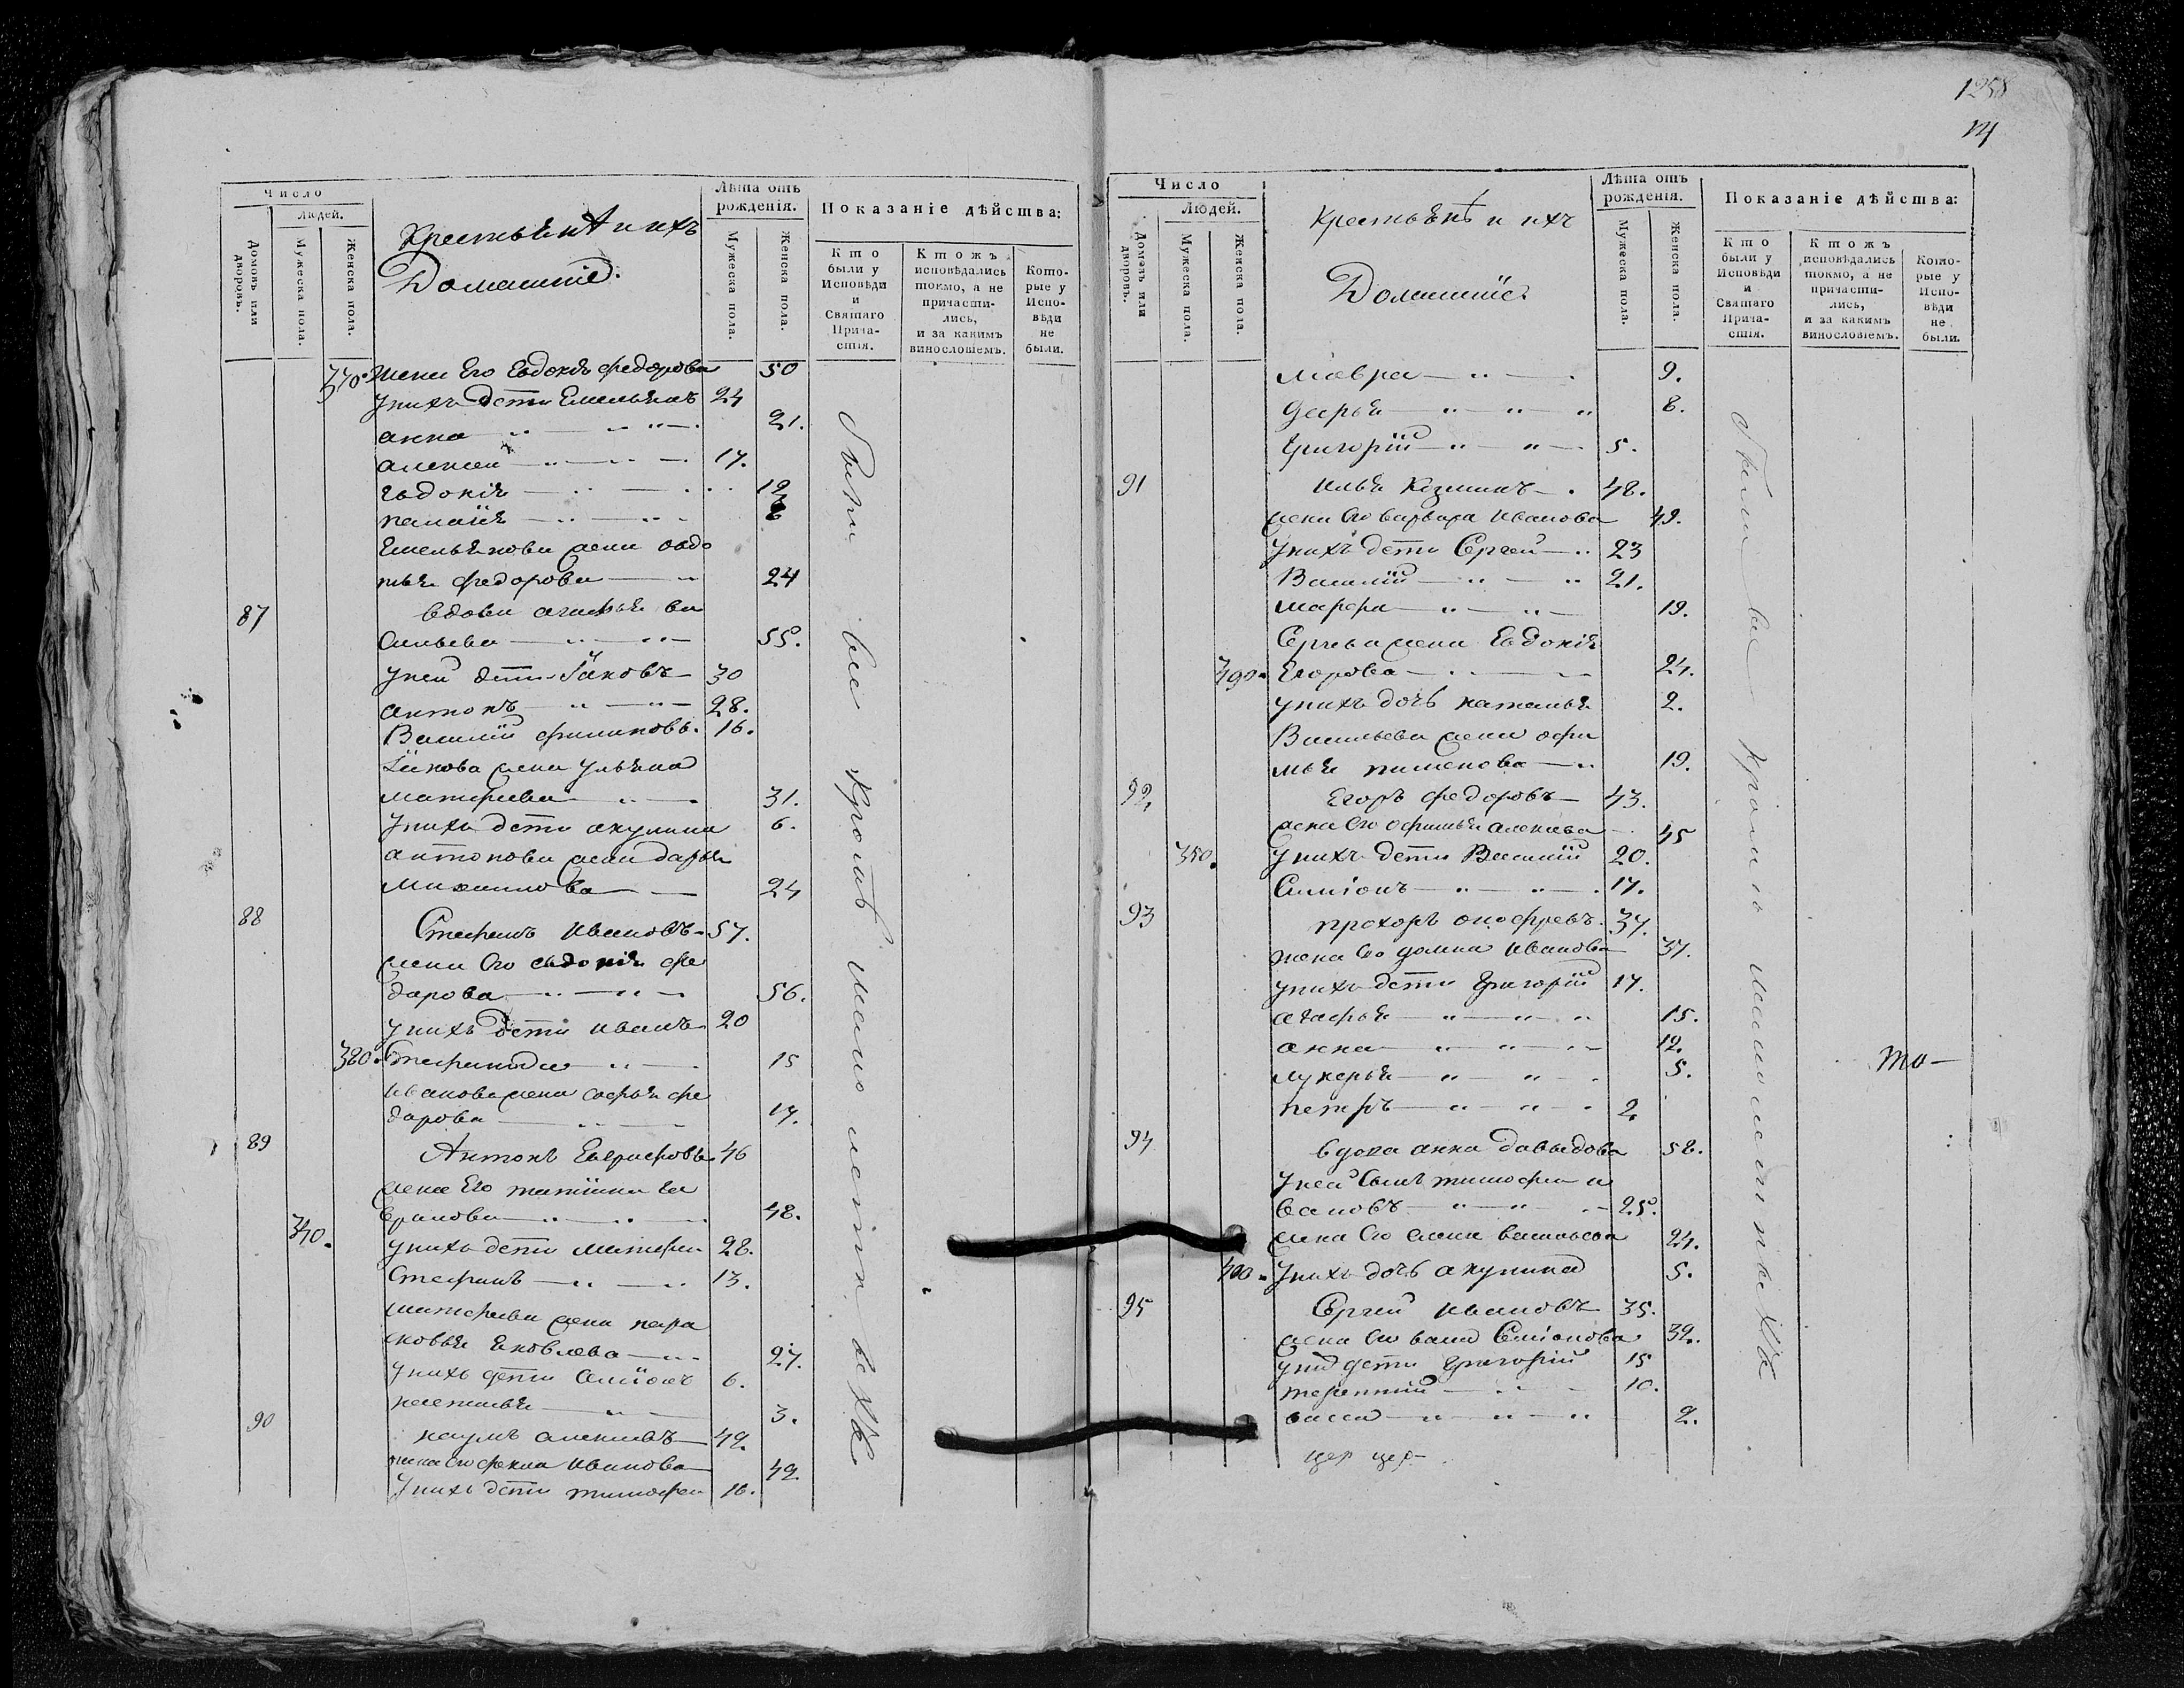 1258
Число
Людей.
Домовъ или дворовъ.
Мужеска пола.
Женска пола.
Крестьяне и ихъ
Домашніе.
Лѣта отъ рожденія.
Мужеска пола.
Женска пола.
Показаніе дѣйства:
Кто были у Исповѣди и Святаго Прича-стія.
Ктожъ исповѣдались токмо, а не причасти-лись, и за какимъ винословіемъ.
Кото-рые у Испо-вѣди не были.
370. жена Его Евдокія федорова 50
у нихъ дети Емельянъ 24
анна 21.
алексеи 17.
евдокія 12
пелагія 8
Емельянова жена овдо
тья федорова 24
87 вдова агафья ва
сильева 55.
у неи дети Іаковъ 30
антонъ 28.
Василій филиповъ. 16.
Іакова жена ульяна
матфеева 31.
у нихъ дети акулина 6.
антонова жена дарья
Михаилова 24
88 Стефанъ Ивановъ 57.
жена Его евдокія фе
дарова 56.
у нихъ дети иванъ 20
380. Степанида 15
иванова жена софья фе
дарова 17.
89 Антонъ Евграфовъ 46
жена Его татіана га
врилова 48.
340. у нихъ дети матфеи 28.
Стефанъ 13.
матфеева жена пара
сковья яковлева 27.
у нихъ дети Симіонъ 6.
наталья 3.
90 наумъ алексеевъ 49.
жена Его фекла Иванова 49
у нихъ дети тимофеи 16.
были все кроме малолетнихъ
Число
Людей.
Домовъ или дворовъ.
Мужеска пола.
Женска пола.
Крестьяне и ихъ
Домашніе
Лѣта отъ рожденія.
Мужеска пола.
Женска пола.
Показаніе дѣйства:
Кто были у Исповѣди и Святаго Прича-стія.
Ктожъ исповѣдались токмо, а не причасти-лись, и за какимъ винословіемъ.
Кото-рые у Испо-вѣди не были.
мавра 9.
дарья 8.
григорій 5.
91 илья Козминъ 48.
жена Его варвара Иванова 49.
у нихъ дети Сергеи 23
Василій 21.
марфа 19.
Сергеева жена Евдокія
390. Егорова 24.
у нихъ дочь наталья 2.
Васильева жена офи
мья пименова 19.
92, Егоръ федоровъ 43.
жена Его офимья алексеева 45
350. у нихъ дети Василій 20.
Симіонъ 17.
93 прохоръ онофревъ. 37.
жена Его домна Иванова 37.
у нихъ дети григорій 17.
агафья 15.
анна 12.
лукерья 5.
петръ 2.
94 вдова анна давыдова 58.
у неи сынъ тимофеи и
вановъ 25.
жена Его елена васильева 24.
400. у нихъ дочь акулина 5.
95 Сергеи ивановъ 35.
жена Его Симіонова 32.
у нихъ дети григорій 15
терентій 10.
васса 2.
были все кроме малолетнихъ